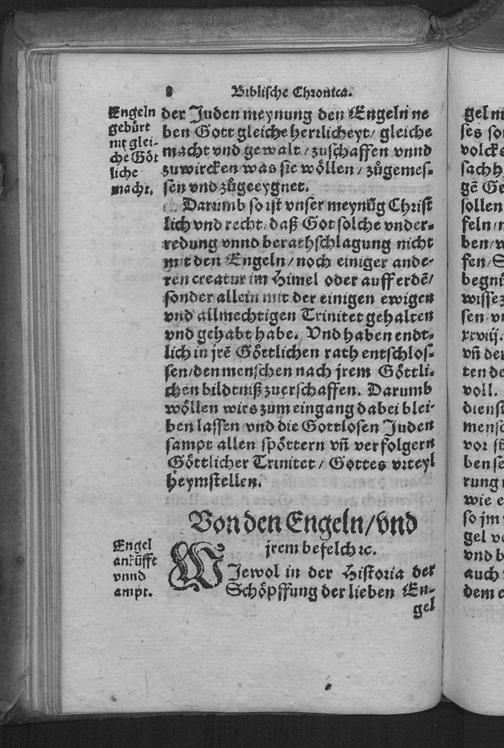 8 Biblische Chronica.
Engeln
gebürt
nit glei-
che Göt
liche
macht.
der Juden meynung den Engeln ne
ben Gott gleiche herrlicheyt/ gleiche
macht vnd gewalt/ zuschaffen vnnd
zuwircken was sie wöllen/ zůgemes-
sen vnd zůgeeygnet.
Darumb so ist vnser meynũg Christ
lich vnd recht/ daß Got solche vnder-
redung vnnd berathschlagung nicht
mit den Engeln/ noch einiger ande-
ren creatur im Himel oder auff erdẽ/
sonder allein mit der einigen ewigen
vnd allmechtigen Trinitet gehalten
vnd gehabt habe. Vnd haben endt-
lich in jrẽ Göttlichen rath entschlos-
sen/ den menschen nach jrem Göttli-
chen bildtniß zuerschaffen. Darumb
wöllen wirs zum eingang dabei blei-
ben lassen vnd die Gottlosen Juden
sampt allen spöttern vñ verfolgern
Göttlicher Trinitet/ Gottes vrteyl
heymstellen.
Von den Engeln/ vnd
jrem befelch ꝛc.
Engel
vnnd
ampt.
WJewol in der Historia der
Schöpffung der lieben En-
gel